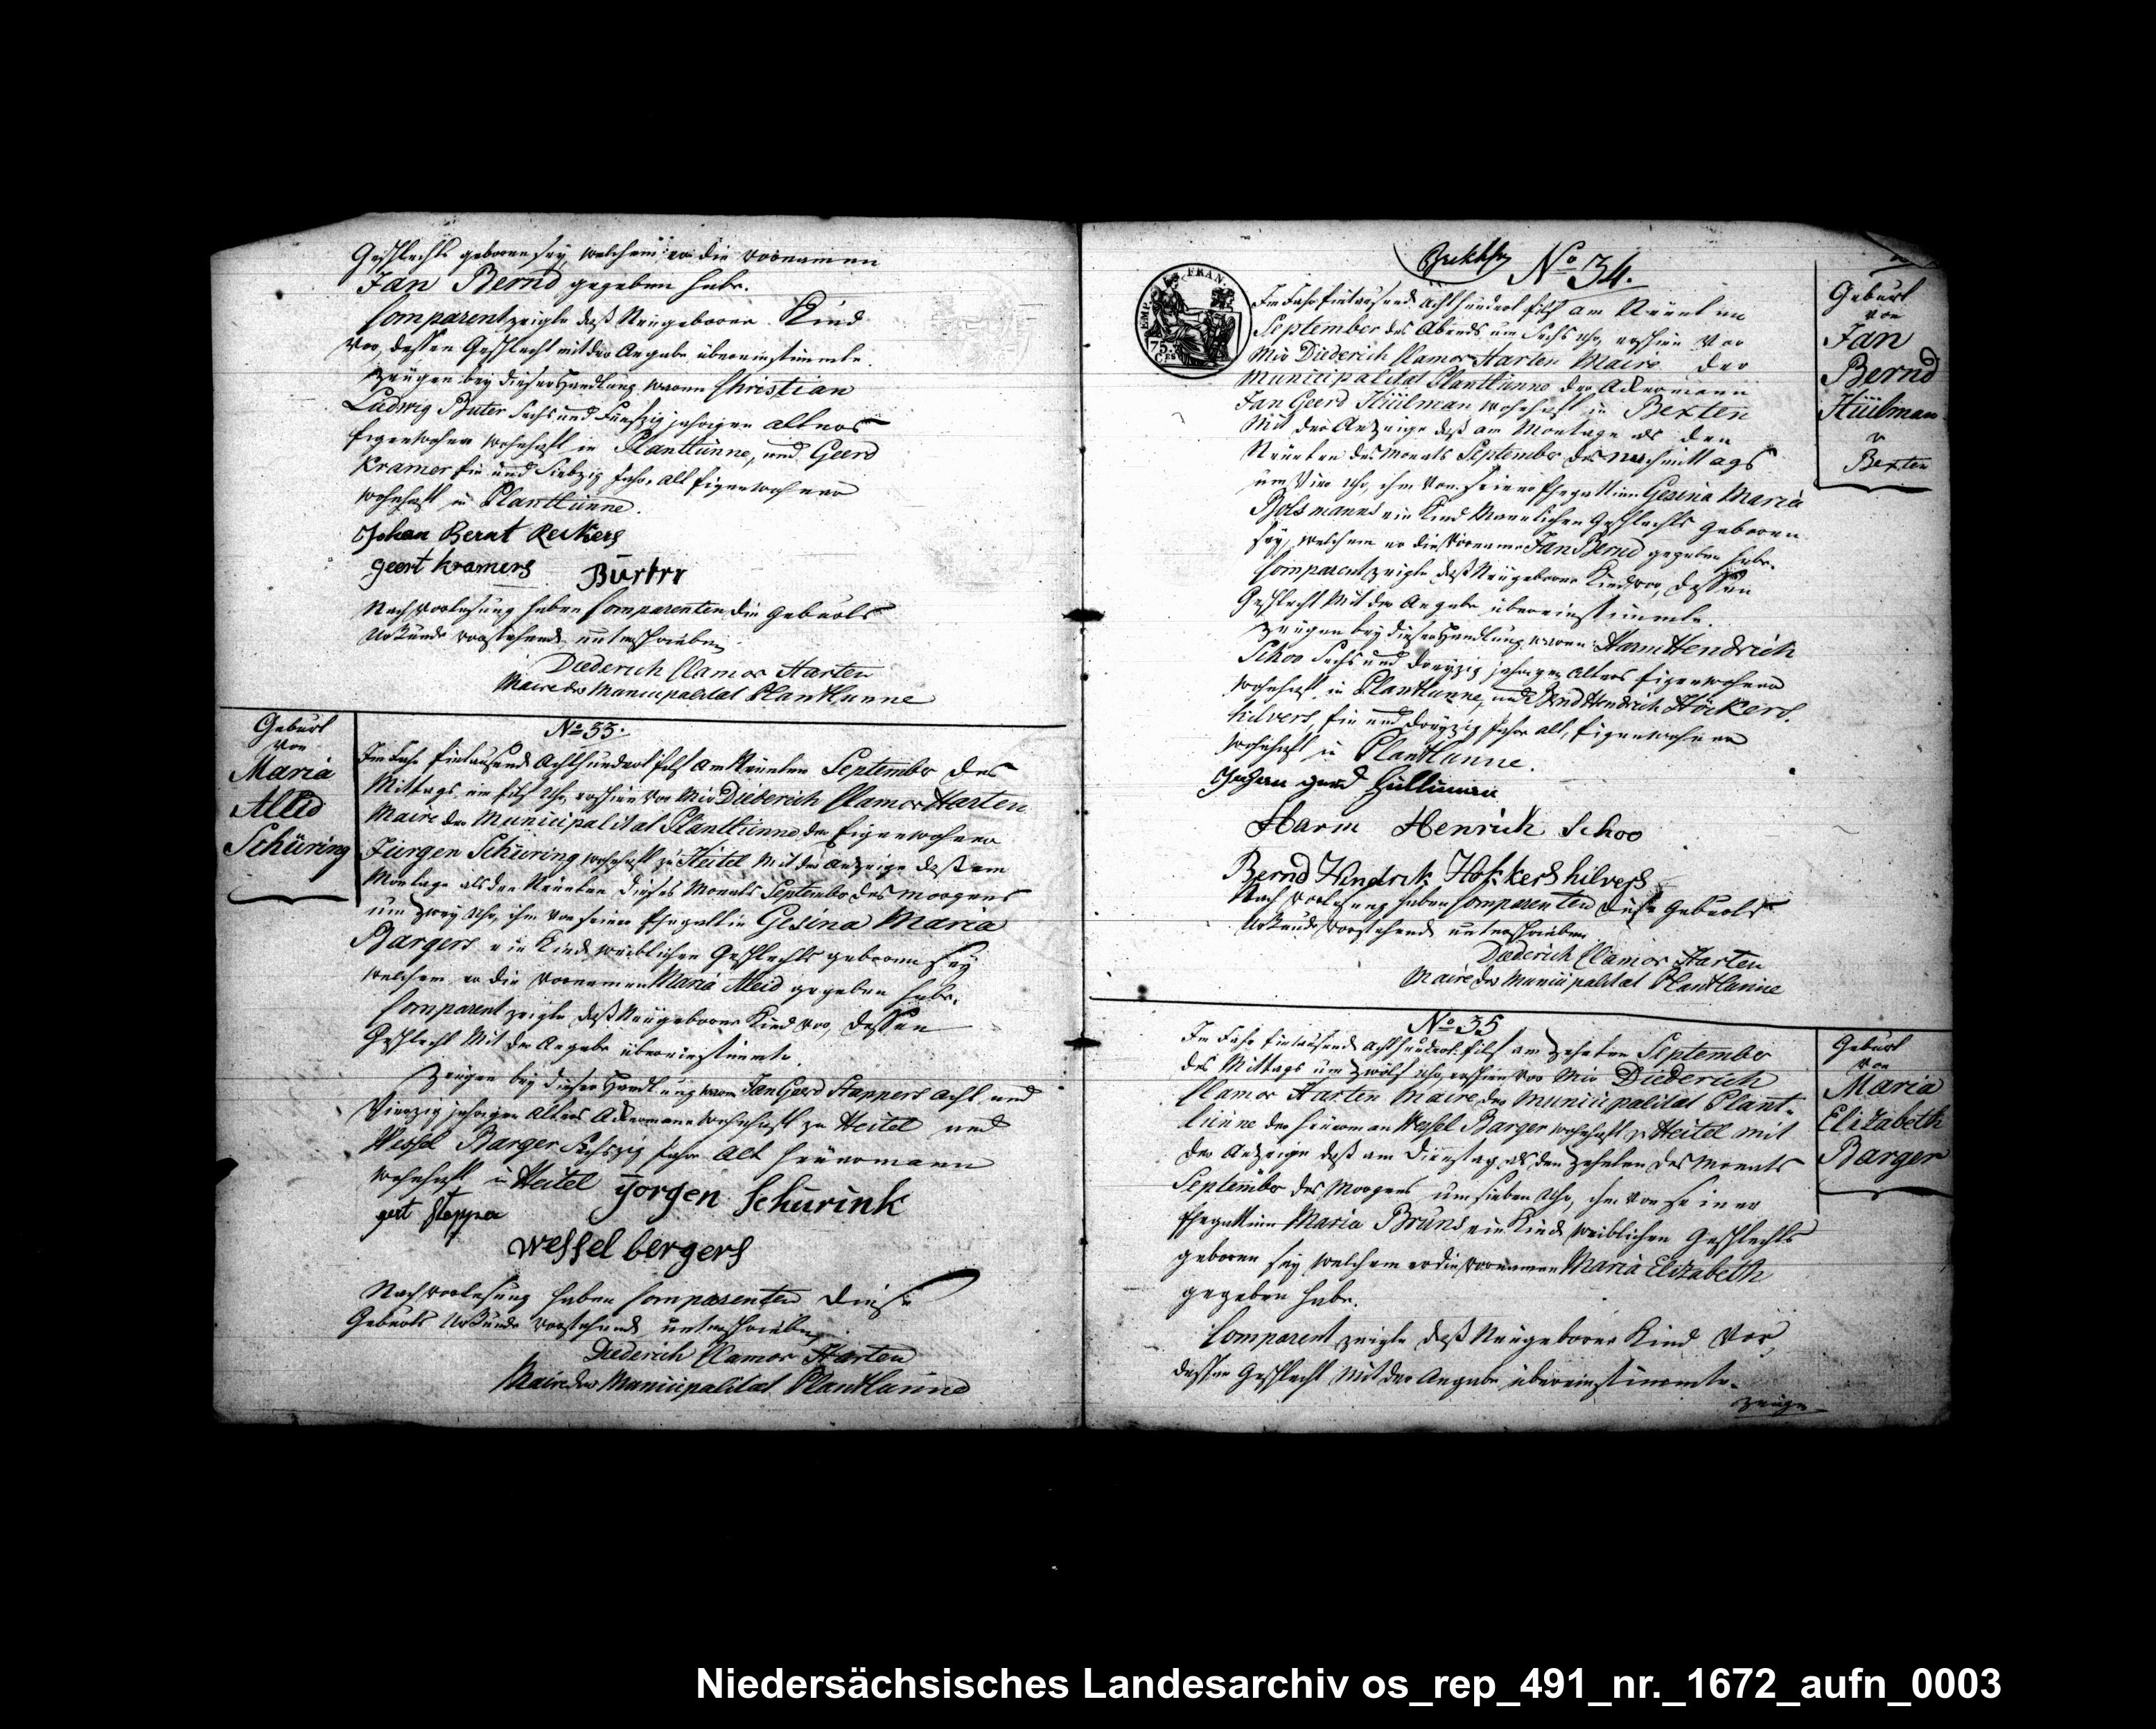 Geschlechts geboren sey, welchem er die Vornamen
Jan Bernd gegeben habe.
Comparent zeigte daß Neugeborne Kind
vor, dessen Geschlecht mit der Angabe übereinstimmte.
Zeugen bey dieser Handlung waren Christian
Ludwig Buter Sechs und Funfzig jahrigen alters
Eigenwohner wohnhaft in Plantlünne, und Geerd
Kramer Ein und Siebzig Jahr alt Eigenwohner
wohnhaft in Plantlünne.
Johan Bernt Reikers
geert kramers
Nach Vorlesung haben Comparenten die Geburts
Urkunde vorstehend unterschrieben
Diederich Clamor Harten
Maire der Municipalitat Plantlunne
Geburt
von
Maria
Aleid
Schüring
No 33.
Im Jahr Eintausend Achthundert Eilf am Neunten September des
Mittags um Eilf Uhr, erschien vor Mir Diederich Clamor Harten
Maire der Municipalitat Plantlünne der Eigenwohner
Jürgen Schüring wohnhaft zu Heitel Mit der Anzeige daß am
Montage als den Neunten dieses Monats September des Morgens
um zwey Uhr, ihm von seiner Ehegattin Gesina Maria
Bargers ein Kind weiblichen Geschlechts geboren sey
welchem er die Vornamen Maria Aleid gegeben habe.
Comparent zeigte daß Neugeborne Kind vor, dessen
Geschlecht Mit der Angabe übereinstimmte.
Zeugen bey dieser Handlung waren Jan Geerd Stappers acht und
Vierzig jahrigen Alters Ackermann wohnhaft zu Heitel und
Wessel Barger Sechszig Jahr alt Heuermann
wohnhaft in Heitel
Jorgen Schurink
gert stapper
wessel bergers
Nach Vorlesung haben Comparenten diese
Geburts Urkunde vorstehend unterschrieben
Diederich Clamor Harten
Maire der Municipalitat Plantlunne
No 34.
EMP. FRAN.
75.
Ces
Im Jahr Eintausend Achthundert Eilf am Neunten
September des Abends um Sechs Uhr, erschien vor
Mir Diederich Clamor Harten Maire der
Municipalitat Plantlünne der Ackermann
Jan Geerd Hüilman wohnhaft in Bexten
Mit der Anzeige daß am Montage als den
Neunten des Monats September des Nachmittags
um Vier Uhr, ihm von seiner Ehegattinn Gesina Maria
Bolsmanns ein Kind Mannlichen Geschlechts geboren
sey, welchem er die Vorname Jan Bernd gegeben habe.
Comparent zeigte daß Neugeborne Kind vor, dessen
Geschlecht Mit der Angabe übereinstimmte.
Zeugen bey dieser Handlung waren Harm Hendrich
Schoo Sechs und Dreyzig jahrigen Alters Eigenwohner
wohnhaft in Plantlunne, und Bernd Hendrich Höckers
hilvers, Ein und Dreyzig Jahr alt, Eigenwohner
wohnhaft in Plantlunne.
Harm Henrich Schoo
Bernd Hendrik Hökkers hilvers
Nach Vorlesung haben Comparenten diese Geburts
Urkunde vorstehend unterschrieben
Diederich Clamor Harten
Maire der Municipalitat Plantlunne
Geburt
von
Jan
Bernd
Hüilman
Bexten
No 35
Im Jahr Eintausend Achthundert Eilf am Zehnten September
des Mittags um Zwölf Uhr, erschien vor Mir Diederich
Clamor Harten Maire der Municipalitat Plant-
lünne der Heuerman Wessel Barger wohnhaft zu Heitel mit
der Anzeige daß am Dienstag, als den Zehnten des Monats
September des Morgens um sieben Uhr, ihm von seiner
Ehegattinn Maria Bruns ein Kind weiblichen Geschlechts
geboren sey welchem er die Vornamen Maria Elizabeth
gegeben habe.
Comparent zeigte daß Neugeborne Kind vor,
dessen Geschlecht Mit der Angabe übereinstimmte.
Zeugen
Geburt
von
Maria
Elizabeth
Barger
Niedersächsisches Landesarchiv os_rep_491_nr._1672_aufn_0003